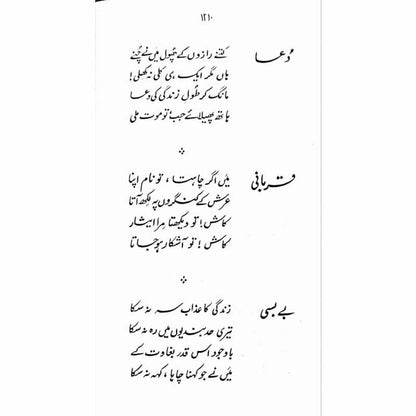 ۱۲۱۰
دُعا
کتنے رازوں کے پھول میں نے چُنے
ہاں مگر ایک ہی کلی نہ کھلی!
مانگ کر طُول زندگی کی دعا
ہاتھ پھیلائے جب، تو موت ملی
قربانی
میں اگر چاہتا، تو نام اپنا
عرش کے کنگروں پہ لکھ آتا
کاش! تو دیکھتا مرا ایثار
کاش! تو آشکار ہو جاتا
بے بسی
زندگی کا عذاب سہہ نہ سکا
تیری حد بندیوں میں رہ نہ سکا
باوجود اس قدر بغاوت کے
میں نے جو کہنا چاہا، کہہ نہ سکا